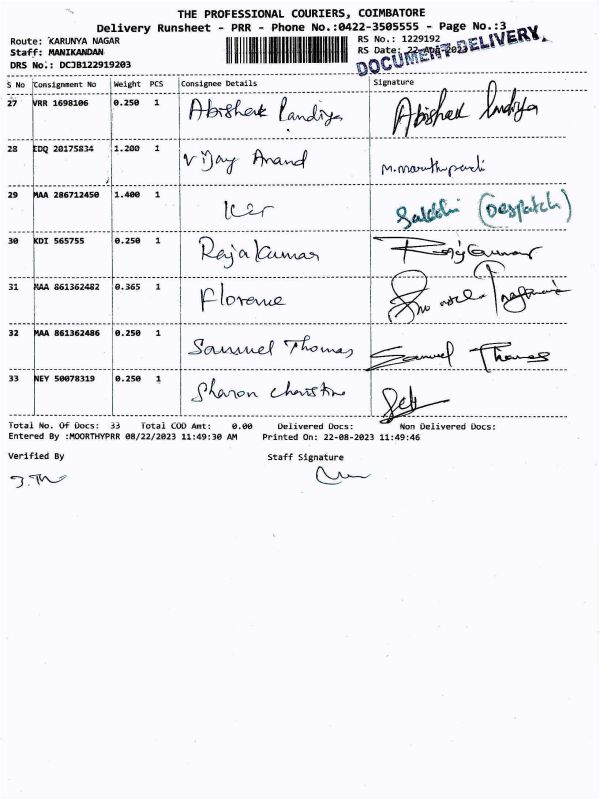 THE PROFESSIONAL COURIERS, COIMBATORE
Delivery Runsheet - PRR - Phone No.:0422-3505555 - Page No.:3
Route: KARUNYA NAGAR RS No.: 1229192
Staff: MANIKANDAN RS Date: 22-Aug-2023
DRS No.: DCJB122919203 DOCUMENT DELIVERY.
S No Consignment No Weight PCS Consignee Details Signature
27 VRR 1698106 0.250 1 Abishek Pandiya Abishek Pandiya
28 EDQ 20175834 1.200 1 Vijay Anand
29 MAA 286712450 1.400 1 Ker Sakthi (Despatch)
30 KDI 565755 0.250 1 Rajakumar Rajakumar
31 MAA 861362482 0.365 1 Florence
32 MAA 861362486 0.250 1 Samuel Thomas Samuel Thomas
33 NEY 50078319 0.250 1 Sharon Christina
Total No. Of Docs: 33 Total COD Amt: 0.00 Delivered Docs: Non Delivered Docs:
Entered By :MOORTHYPRR 08/22/2023 11:49:30 AM Printed On: 22-08-2023 11:49:46
Verified By Staff Signature